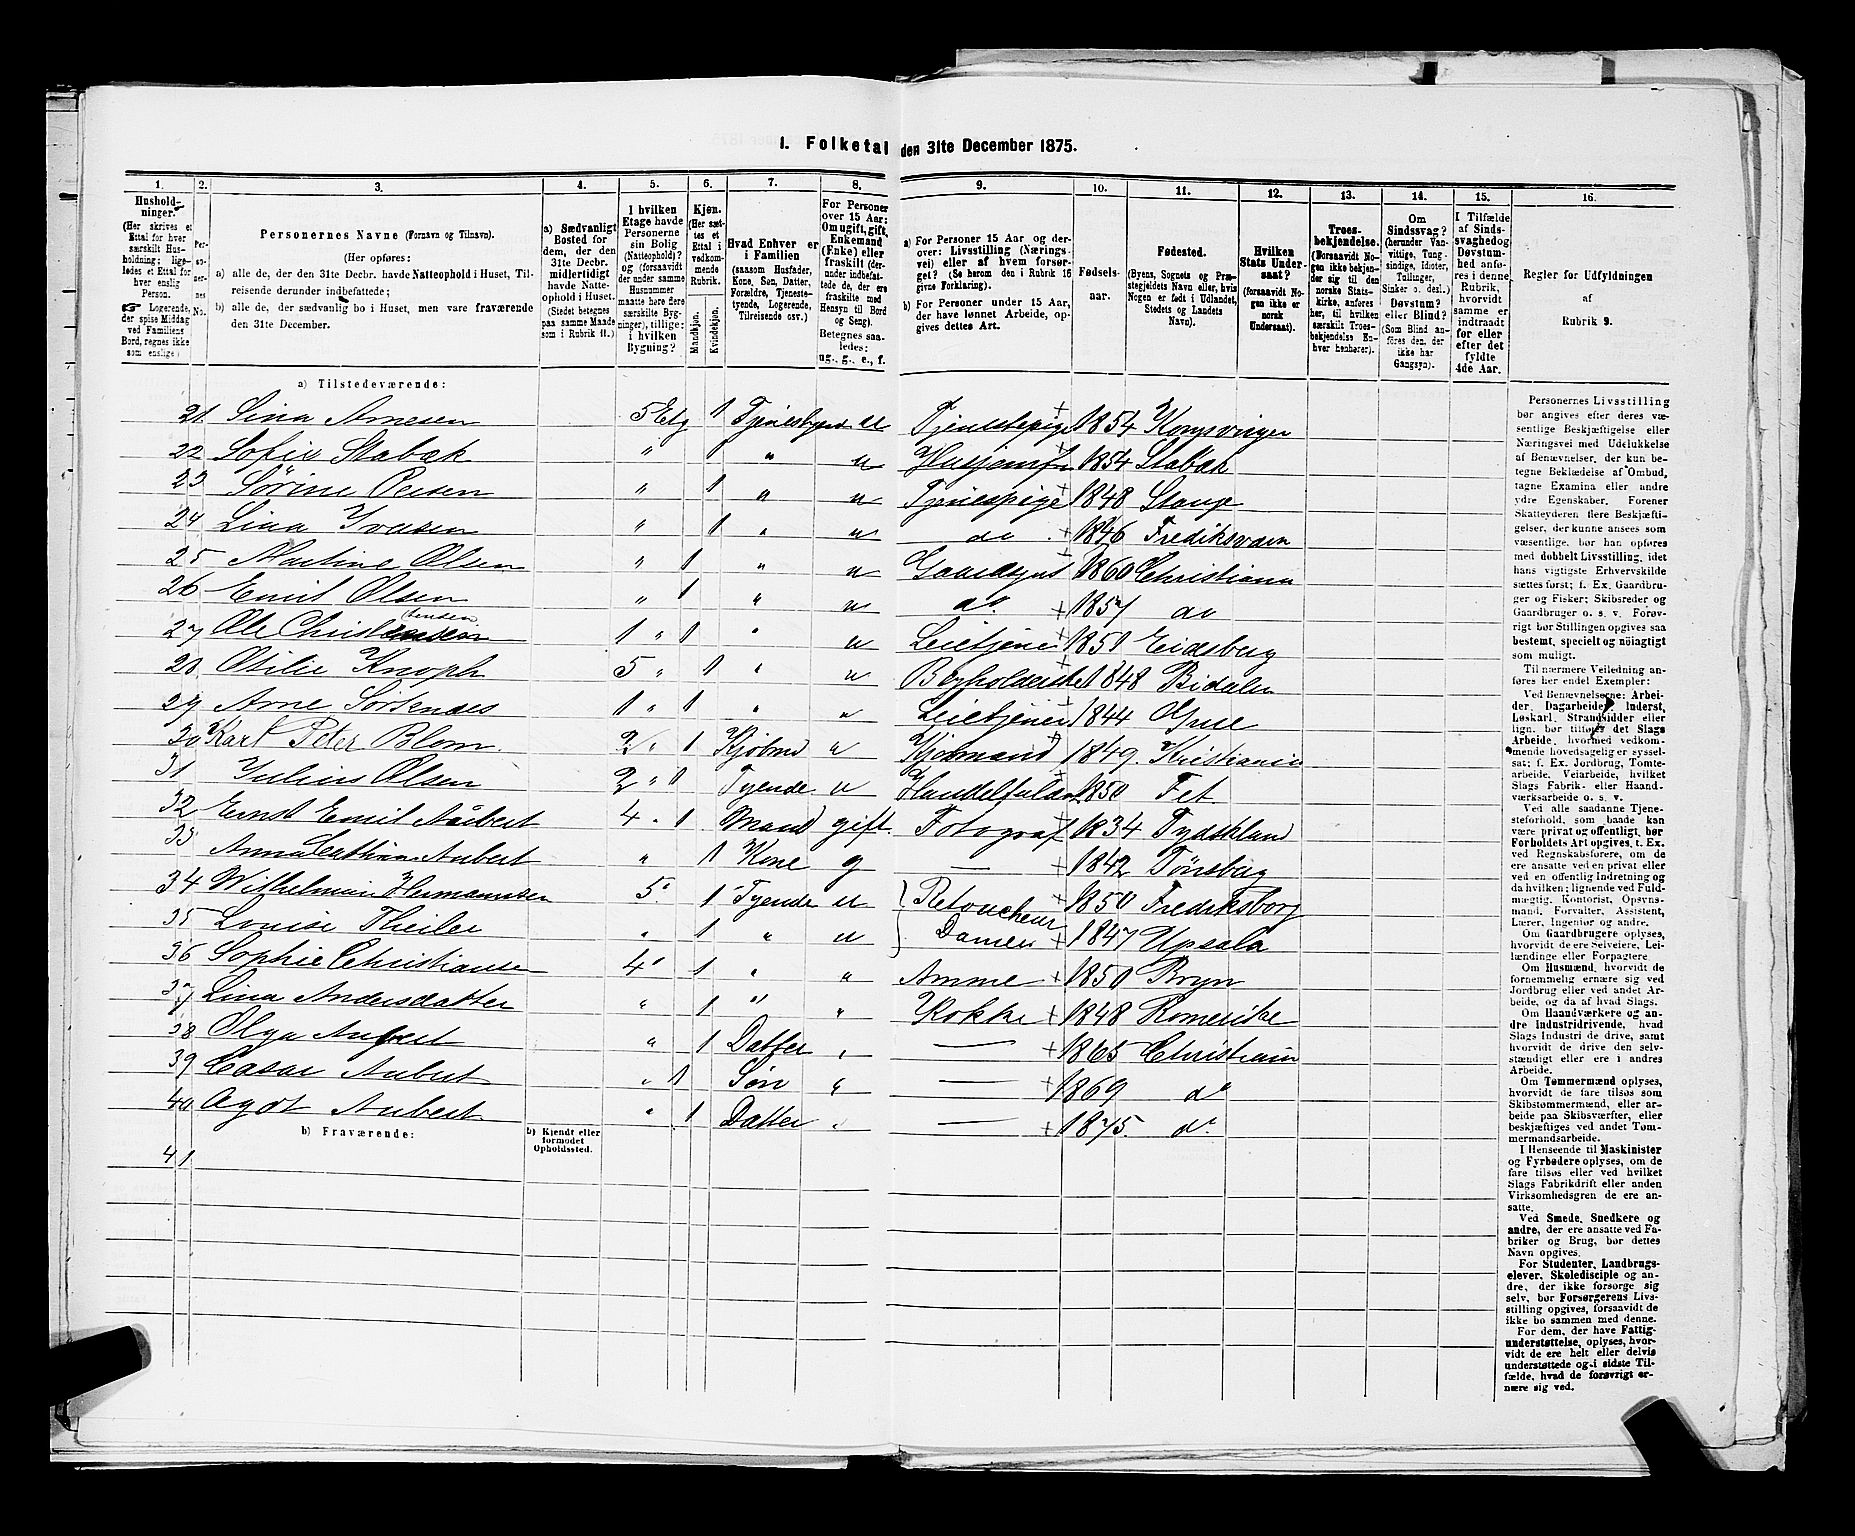 1. Folketal den 31te December 1875.
1. 2. 3. 4. 5. 6. 7. 8. 9. 10. 11. 12. 13. 14. 15. 16.
Husholdninger. (Her skrives et Ettal for hver særskilt Husholdning; ligeledes et Ettal for hver enslig Person. ☛ Logerende, der spise Middag ved Familiens Bord, regnes ikke som enslige.)
Personernes No.
Personernes Navne (Fornavn og Tilnavn).
(Her opføres:
a) alle de, der den 31te Decbr. havde Natteophold i Huset, Tilreisende derunder indbefattede;
b) alle de, der sædvanlig bo i Huset, men vare fraværende den 31te December.
a) Sædvanligt Bosted for dem, der den 31te Decbr. midlertidigt havde Natteophold i Huset. (Stedet betegnes paa samme Maade som i Rubrik 11.)
I hvilken Etage havde Personerne sin Bolig (Natteophold)? og (forsaavidt der under samme Husnummer maatte høre flere særskilte Bygninger), tillige: i hvilken Bygning?
Kjøn. (Her sættes et Ettal i vedkommende Rubrik.
Mandkjøn. Kvindekjøn.
Hvad Enhver er i Familien (saasom Husfader, Kone, Søn, Datter, Forældre, Tjenestetyende, Logerende, Tilreisende osv.)
For Personer over 15 Aar: Om ugift, gift, Enkemand (Enke) eller fraskilt (derunder indbefattede de, der ere fraskilte med Hensyn til Bord og Seng). Betegnes saaledes: ug., g., e., f.
a) For Personer 15 Aar og derover: Livsstilling (Næringsvei) eller af hvem forsørget? (Se herom den i Rubrik 16 givne Forklaring).
b) For Personer under 15 Aar, der have lønnet Arbeide, opgives dettes Art.
Fødselsaar.
Fødested. (Byens, Sognets og Præstegjeldets Navn eller, hvis Nogen er født i Udlandet, Stedets og Landets Navn).
Hvilken Stats Undersaat? (forsaavidt Nogen ikke er norsk Undersaat).
Troesbekjendelse. (Forsaavidt Nogen ikke bekjender sig til den norske Statskirke, anføres her, til hvilken særskilt Troesbekjendelse Enhver henhører).
Om Sindssvag? (herunder Vanvittige, Tungsindige, Idioter, Tullinger, Sinker o. desl.) Døvstum? eller Blind? (Som Blind anføres den, der ikke har Gangsyn).
I Tilfælde af Sindssvaghed og Døvstumhed anføres i denne Rubrik, hvorvidt samme er indtraadt før eller efter det fyldte 4de Aar.
Regler for Udfyldningen af Rubrik 9.
a) Tilstedeværende:
21 Lina Arnesen 5 Etg 1 u Tjenestepige 1854 Kongsvinger
22 Sofie Stabæk " 1 " u 1854 Stabæk
23 Sørine Olesen " 1 " u Tjenespige 1848 Stange
24 Lina Iversen " 1 " u do 1846 Fredriksværn
25 Martine Olsen " 1 " u 1860 Christiania
26 Emil Olsen " 1 " u do 1857 do
27 Ole Christensen 1 " 1 " u Leietjener 1850 Eidsberg
28 Otilie Knoph 5 " 1 " u 1848
29 Arne 1 " 1 " " Leietjener 1844
30 Karl Peter Blom 2 " 1 u Kjøbmand 1849. Kristiania
31 Julius Olsen 2 " 1 Tyende u 1850 Fet
32 Ernst Emil Aubert 4 " 1 Mand gift Fotograf 1834 Tydskland
33 Anna Cathrine Aubert " 1 Kone g — 1842 Tønsberg
34 Wilhelmine Hermannsen 5 " 1 Tyende u Retoucheur 1850 Fredriksborg
35 Louise Theiler " 1 " u Damer 1847 Upsala
36 Sophie Christiansen 4 " 1 " " Amme 1850 Bryn
37 Lina Andersdatter " 1 " " Kokke 1848 Romerike
38 Olga Aubert " 1 Datter " — 1865 Christiania
39 Cæsar Aubert " 1 Søn " — 1869 do
40 Agot Aubert " 1 Datter " — 1875. do
b) Fraværende: b) Kjendt eller formodet Opholdssted.
41
Personernes Livsstilling
bør angives efter deres væ-
sentlige Beskjæftigelse eller
Næringsvei med Udelukkelse
af Benævnelser, der kun be-
tegne Beklædelse af Ombud,
tagne Examina eller andre
ydre Egenskaber. Forener
Skatteyderen flere Beskjæfti-
gelser, der kunne ansees som
væsentlige, bør han opføres
med dobbelt Livsstilling, idet
hans vigtigste Erhvervskilde
sættes først; f. Ex. Gaardbru-
ger og Fisker; Skibsreder og
Gaardbruger o. s. v. Forøv-
rigt bør Stillingen opgives saa
bestemt, specielt og nøiagtigt
som muligt.
Til nærmere Veiledning an-
føres her endel Exempler:
Ved Benævnelserne: Arbei-
der, Dagarbeider, Inderst,
Løskarl, Strandsidder eller
lign. bør tilføies det Slags
Arbeide, hvormed vedkom-
mende hovedsagelig er syssel-
sat; f. Ex. Jordbrug, Tomte-
arbeide, Veiarbeide, hvilket
Slags Fabrik- eller Haand-
værksarbeide o. s. v.
Ved alle saadanne Tjene-
steforhold, som baade kan
være privat og offentligt, bør
Forholdets Art opgives, t. Ex.
ved Regnskabsførere, om de
ere ansatte ved en privat eller
ved en offentlig Indretning og
da hvilken; lignende ved Fuld-
mægtig, Kontorist, Opsyns-
mand, Forvalter, Assistent,
Lærer, Ingeniør og andre.
Om Gaardbrugere oplyses,
hvorvidt de ere Selveiere, Lei-
lændinge eller Forpagtere.
Om Husmænd, hvorvidt de
fornemmelig ernære sig ved
Jordbrug eller ved andet Ar-
beide, og da af hvad Slags.
Om Haandværkere og an-
dre industridrivende, hvad
Slags Industri de drive, samt
hvorvidt de drive den selv-
stændigt eller ere i andres
Arbeide.
Om Tømmermænd oplyses,
hvorvidt de fare tilsøs som
Skibstømmermænd, eller ar-
beide paa Skibsværfter, eller
beskjæftiges ved andet Tøm-
mermandsarbeide.
I Henseende til Maskinister
og Fyrbødere oplyses, om de
fare tilsøs eller ved hvilket
Slags Fabrikdrift eller anden
Virksomhedsgren de ere an-
satte.
Ved Smede, Snedkere og
andre, der ere ansatte ved Fa-
briker og Brug, bør dettes
Navn opgives.
For Studenter, Landbrugs-
elever, Skoledisciple og an-
dre, der ikke forsørge sig
selv, bør Forsørgerens Livs-
stilling opgives, forsaavidt de
ikke bo sammen med denne.
For dem, der have Fattig-
understøttelse, oplyses, hvor-
vidt de ere helt eller delvis
understøttede og i sidste Til-
fælde, hvad de forøvrigt er-
nære sig ved.